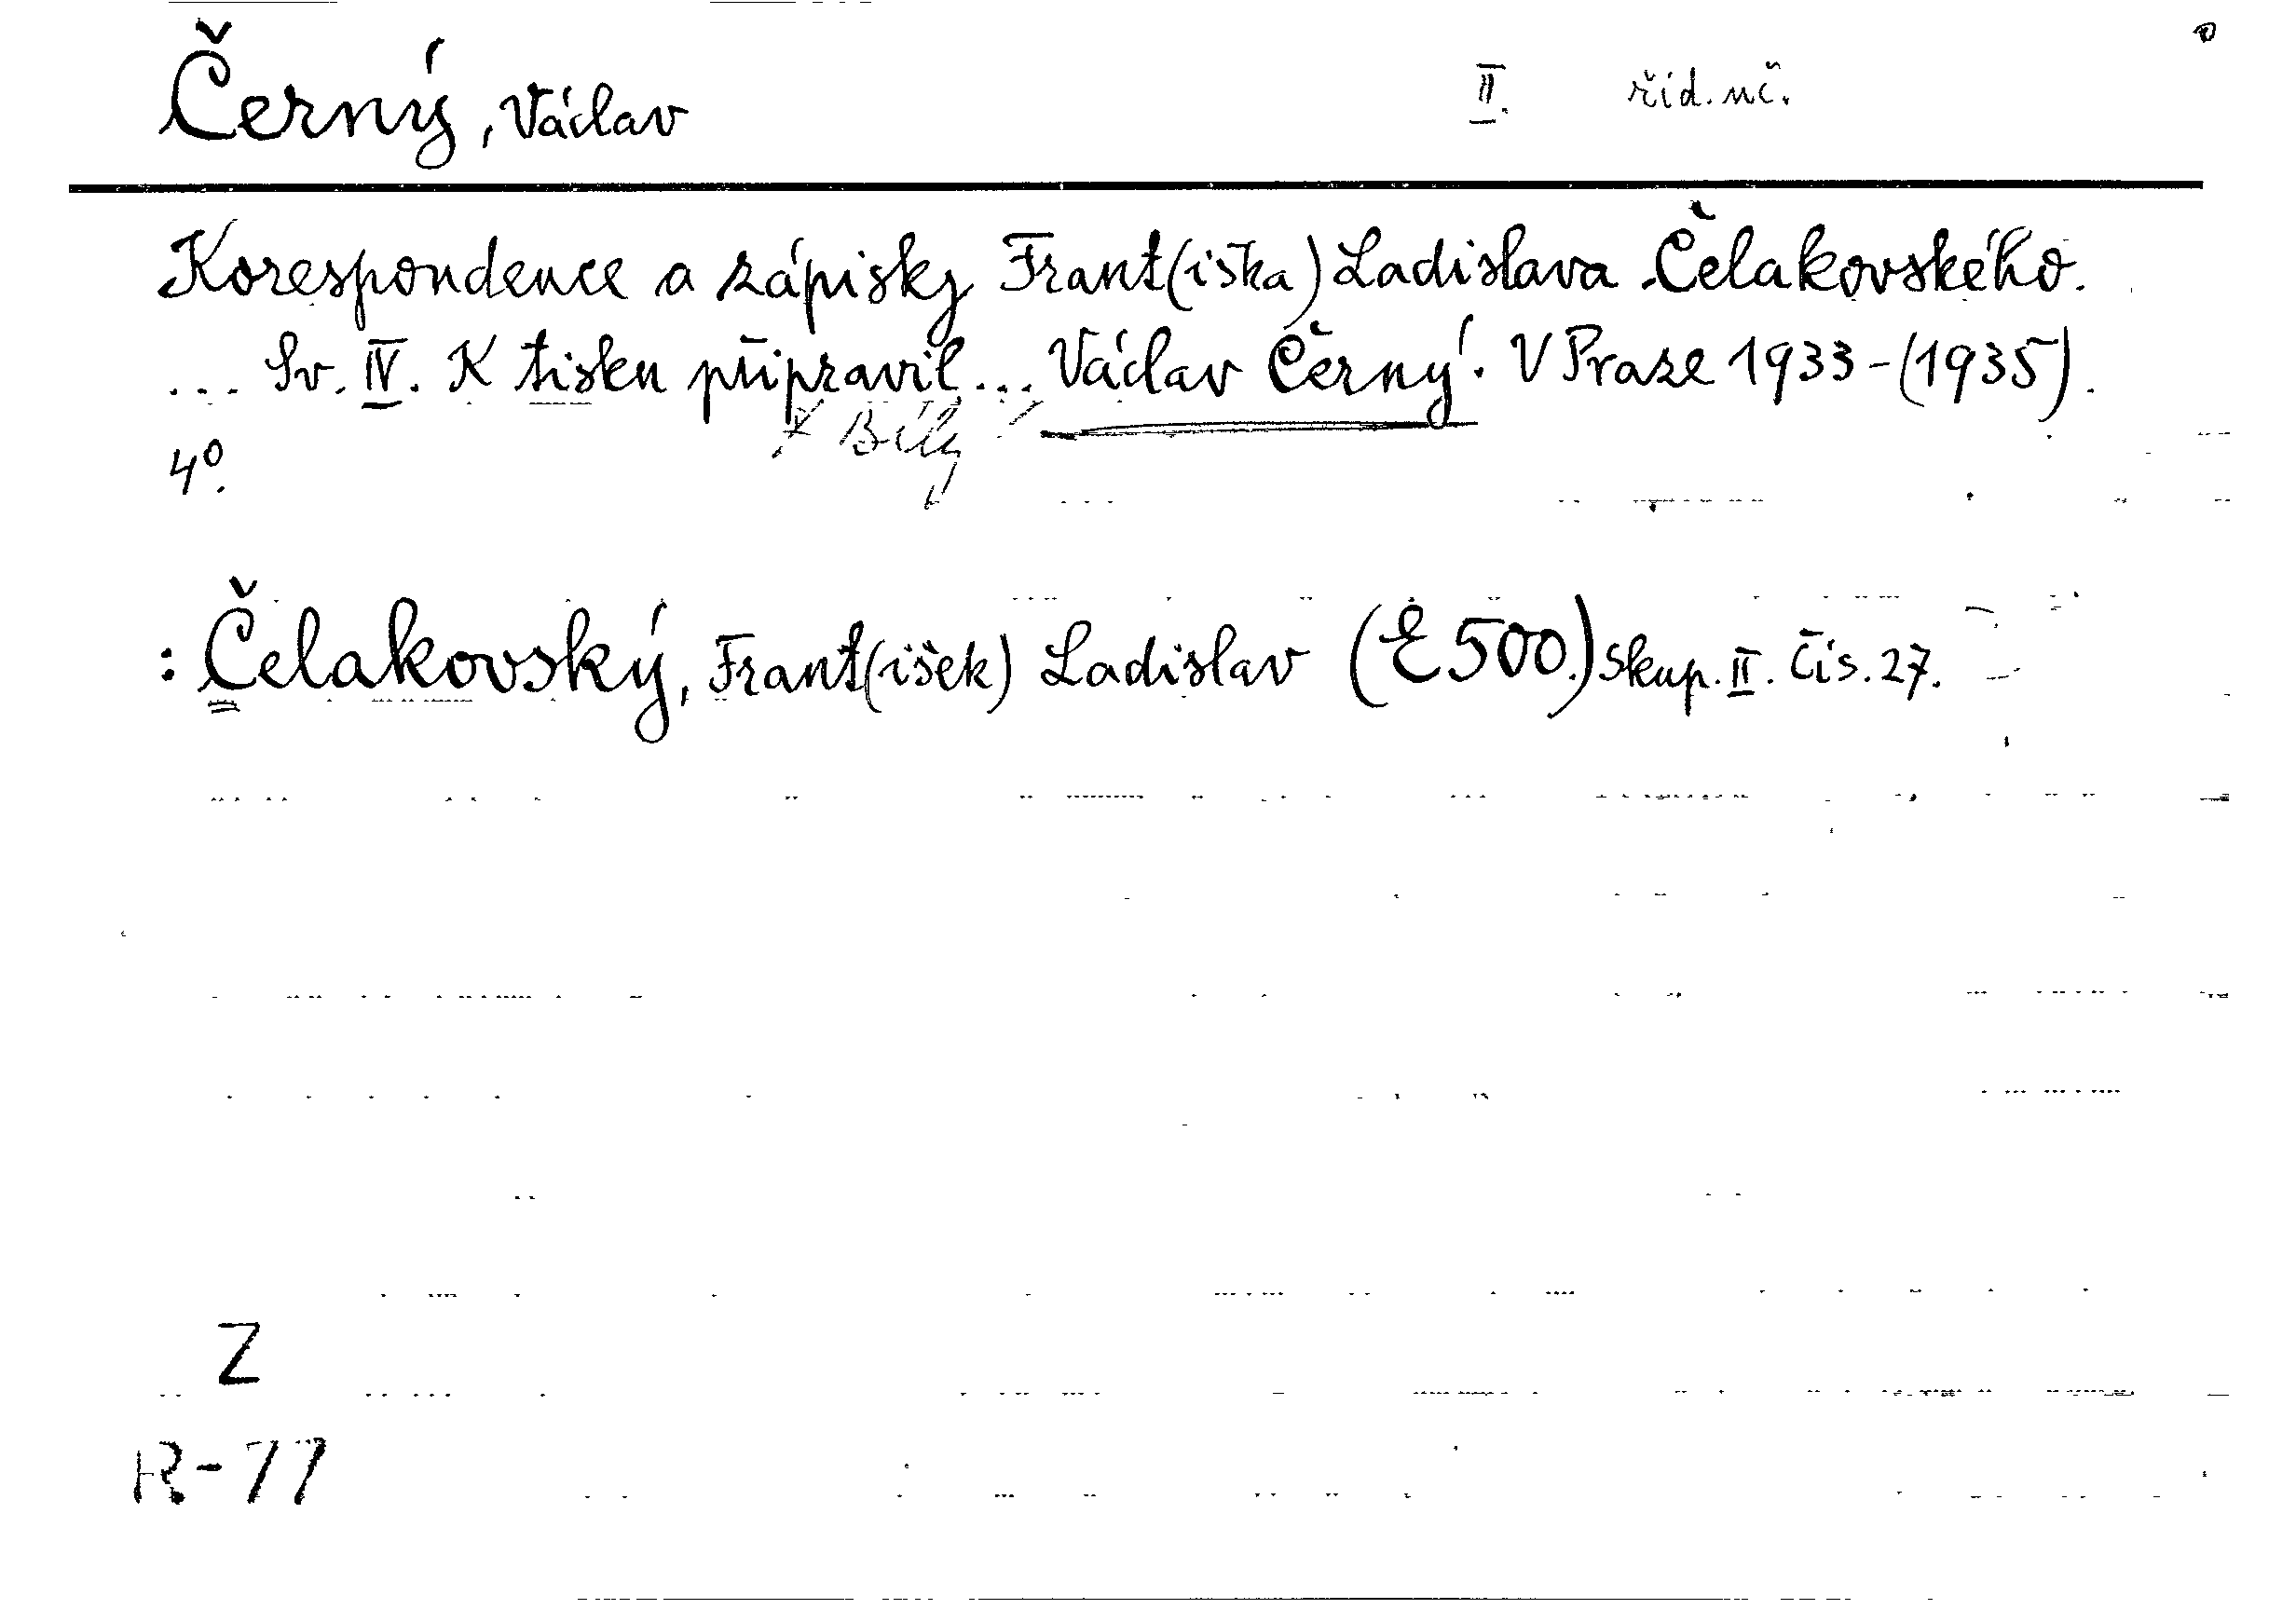 Černý, Václav II. říd. uč.
Korespondence a zápisky Frant(iška) Ladislava Čelakovského.
... Sv. IV. K tisku připravil... Václav Černý. V Praze 1933-(1935).
Bílý
4°.
: Čelakovský, Frant(išek) Ladislav (E 500.) Skup. II. Čís. 27.
Z
R-77